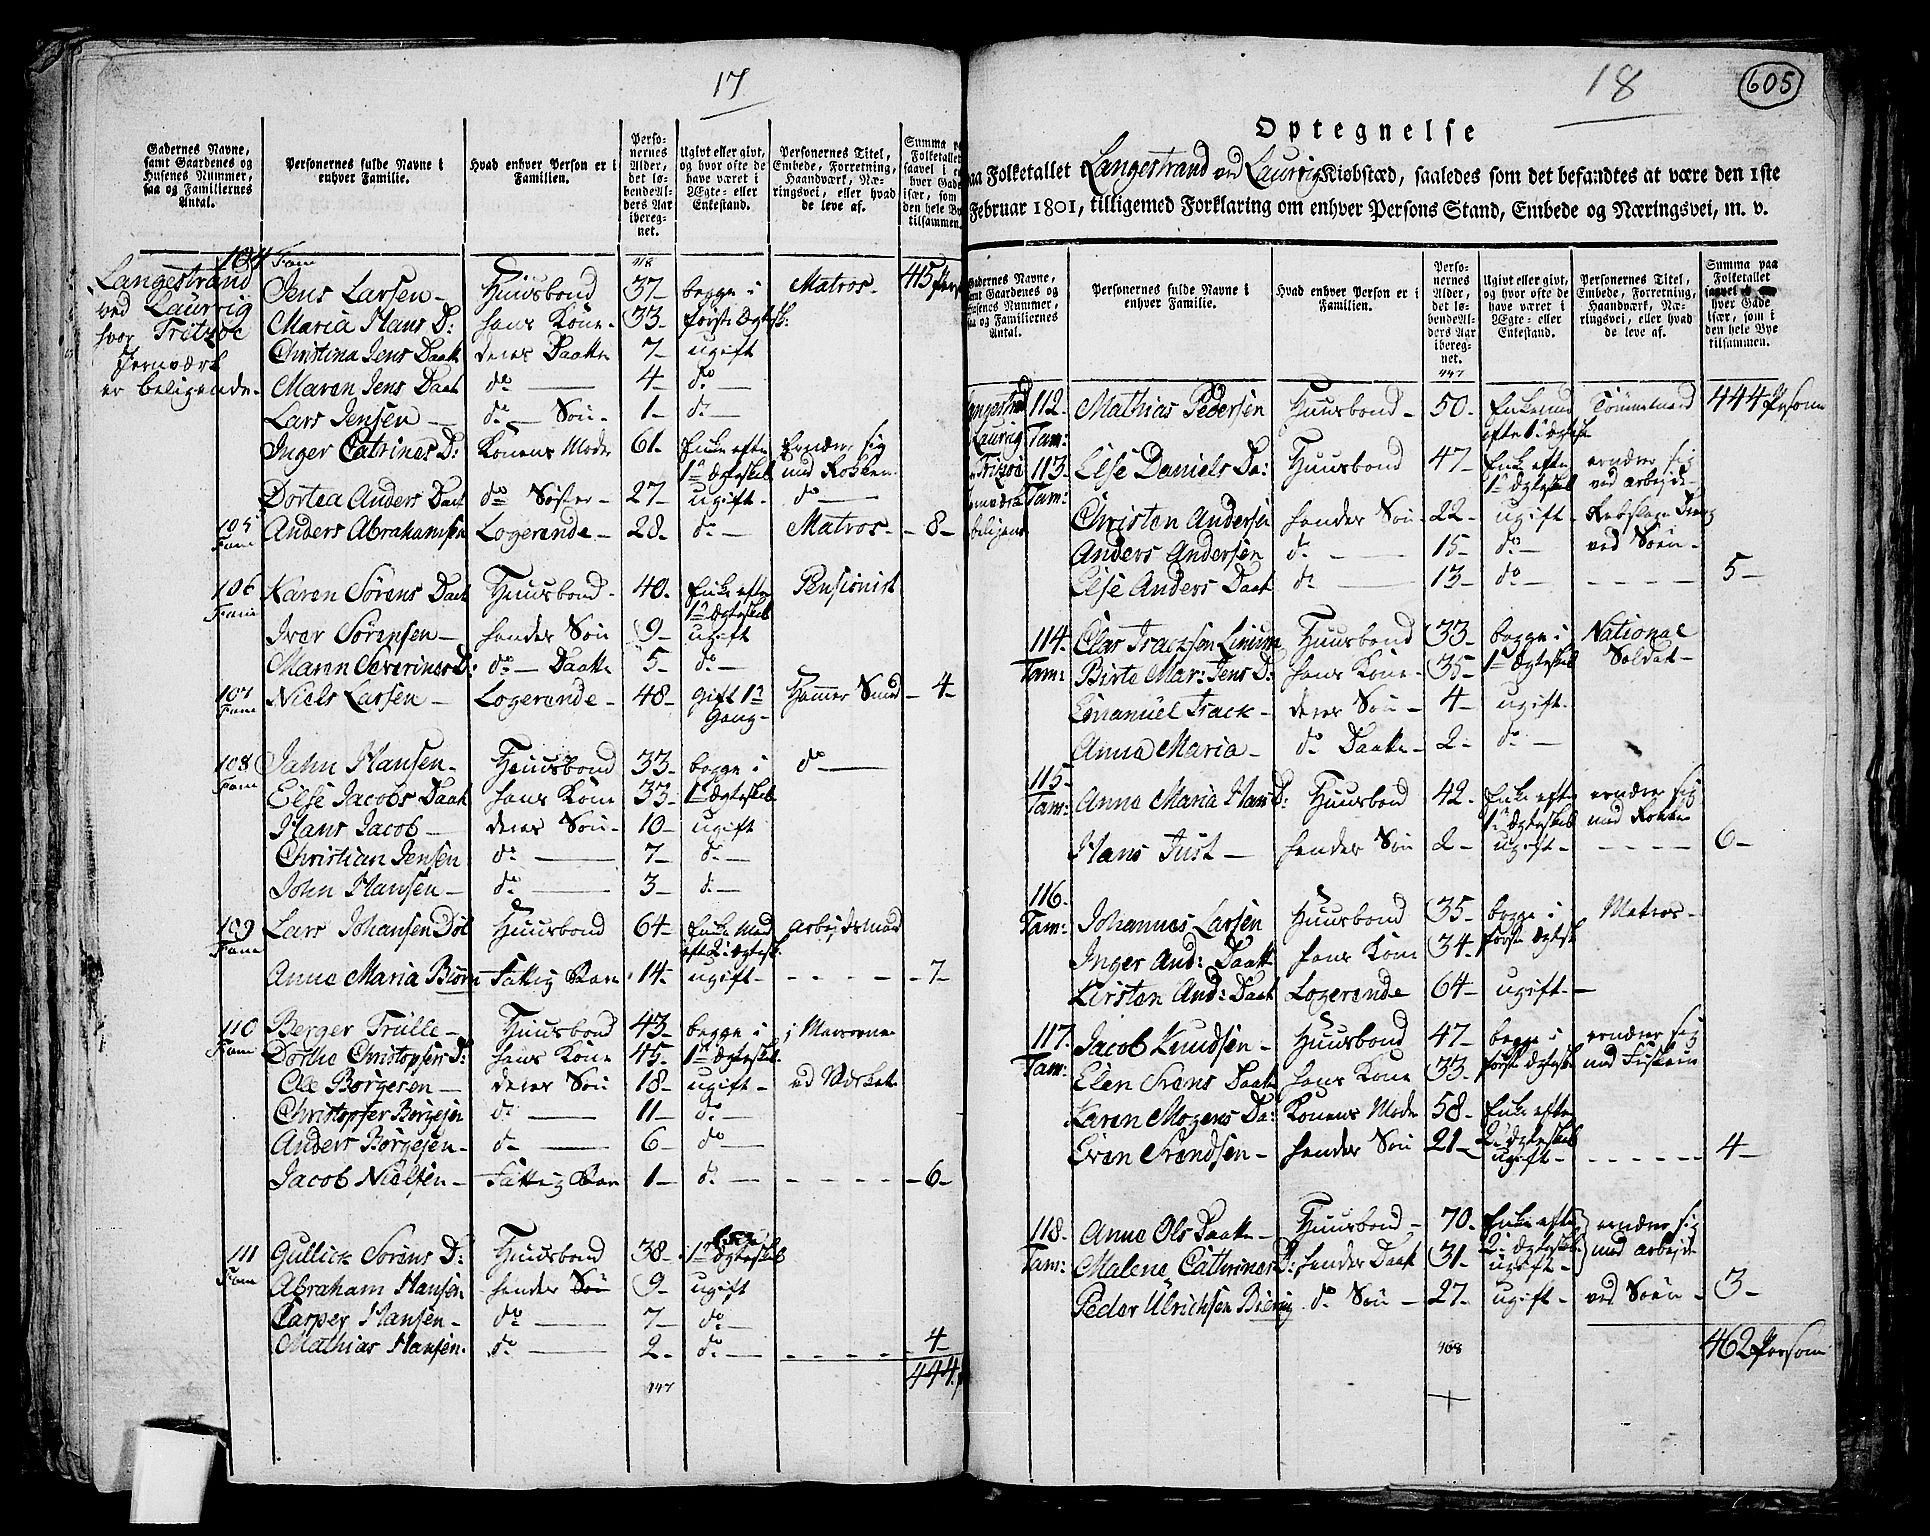 17
Gadernes Navne, samt Gaardenes og Husenes Nummer, saa og Familiernes Antal.
Personernes fulde Navne i enhver Familie.
Hvad enhver Person er i Familien.
Personernes Alder, det løbende Alders Aar iberegnet.
Ugivt eller givt, og hvor ofte de have været i Ægte- eller Enkestand.
Personernes Titel, Embede, Forretning, Haandværk, Næringsvei, eller hvad de leve af.
Langestrand
ved Laurvig
hvor Fritzøe
Jernværk
er beligende
104 Fam
Jens Larsen - Huusbond 37 begge i Matros
Maria Hans D: hans Kone 33 første Ægtesk:
Christina Jens Daatt deres Daatte 7 ugift
Maren Jens Daat do 4 do
Lars Jensen do Søn 1 do
Inger Catrines D: Konens Mode 61 Enke efte Ernærer sig
1te Ægteskab med Rokken
Dortea Anders Daat do Søster 27 ugift do
105 Fam Anders Abrahamsen Logerende 28 do Matros 8
106 Fam Karen Sørens Daat Huusbond 40 Enke efte Pensionist
1te Ægteskab
Iver Sørensen hendes Søn 9 ugift
Maren Severines D: do Daatte 5 do
107 Fam Niels Larsen Logerende 48 gift 1te Hammer Smed 4
Gang
108 Fam Jahn Hansen Huusbond 33 begge i do
Else Jacobs Daat hans Kone 33 1te Ægteskab
Hans Jacob deres Søn 10 ugift
Christian Jensen do 7 do
John Hansen do 3 do
109 Fam Lars Johansen Døl Huusbond 64 Enke Mand arbejdsmand
eft 2 Ægtesk:
Anne Maria Biørn Fattig Barn 14 ugift 7
110 Fam Berger Trulle Huusbond 43 begge i j Masovne
Dorthe Christophers D: hans Kone 45 1te Ægteskab
Ole Børgesen deres Søn 18 ugift ved Værket
Christopher Børgesen do 11 do
Anders Børgesen do 6 do
Jacob Nielsen Fattig Barn 1 do 6
111 Fam Gullick Sørens D: Huusbond 38 1te Ægteskab
Abraham Hansen hendes Søn 9 ugift
Casper Hansen do 7 do
Mathias Hansen do 2 do 4
447
444
18
605
Optegnelse
paa Folketallet i Langestrand ved Laurvig Kiøbstæd, saaledes som det befandtes at være den 1ste
Februar 1801, tilligemed Forklaring om enhver Persons Stand, Embede og Næringsvei, m. v.
Personernes fulde Navne i enhver Familie.
Hvad enhver Person er i Familien.
Personernes Alder, det løbende Alders Aar iberegnet.
Ugivt eller givt, og hvor ofte de have været i Ægte- eller Enkestand.
Personernes Titel, Embede, Forretning, Haandværk, Næringsvei, eller hvad de leve af.
Summa paa Folketallet saavel i enhver Gade især, som i den hele Bye tilsammen.
447
112 Fam: Mathias Pedersen Huusbond 50 Enkemand Tømmermand 444 Person
efter 1 Ægtesk
113 Fam: Else Daniels Da: Huusbond 47 Enke efte ernærer sig
1te Ægteskab ved arbejde
Christen Andersen hendes Søn 22 ugift Rebslager Dreng
Anders Andersen do 15 do ved Søen
Else Anders Daat do 13 do 5
114 Fam: Huusbond 33 begge i National
Birte Mar: Jens D: hans Kone 35 1te Ægteskab Soldat
Emanuel Track deres Søn 4 ugift
Anna Maria do Daatte 2 do
115 Fam: Anne Maria Hans D: Huusbond 42 Enke efte ernærer sig
1te Ægteskab med Rokke
Hans Just hendes Søn 2 ugift 6
116 Fam: Johannes Larsen Huusbond 35 begge i Matros
Inger And: Daatt hans Kone 34 første Ægtesk
Kirsten And: Daat Logerende 64 ugift
117 Fam: Jacob Knudsen Huusbond 47 begge i ernærer sig
Elen Svens Daat hans Kone 33 første Ægtesk med Fiskerie
Karen Mogens Da: Konens Mode 58 Enke efte
2 Ægteskab
Even Svendsen hendes Søn 21 ugift 4
118 Fam: Anne Ols Daatte Huusbond 70 Enke efte ernærer sig
2 Ægteskab med arbejde
Malene Cathrines D: hendes Daat 31 ugift
Peder Ulrichsen Biering do Søn 27 ugift ved Søen 3
468
462 Person